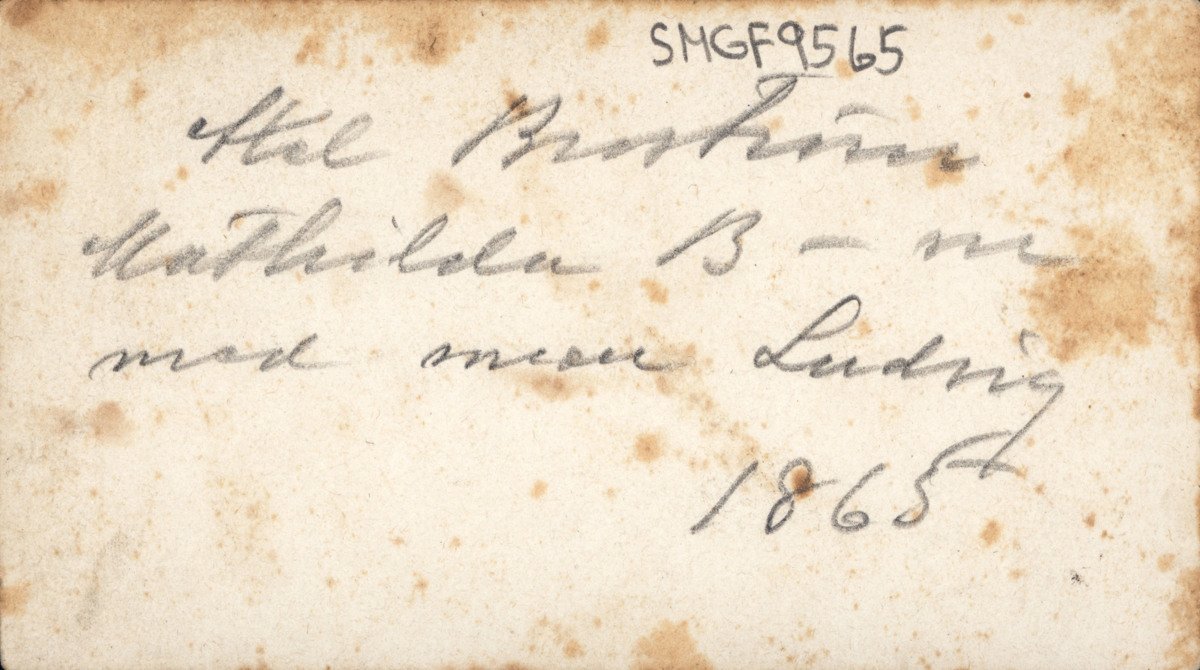 SMGF9565
Axel Broström
Mathilda B - m
med son Ludvig
1865